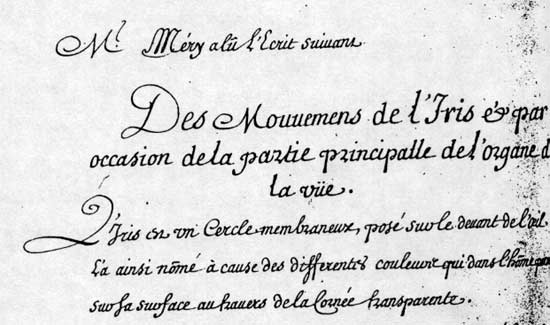 Mr. Méry a lû l'Ecrit suivant
Des Mouuemens de l'Iris & par
occasion de la partie principalle de l'organe d
la vüe.
L'Iris est vn Cercle membraneux, posé sur le deuant de l'œil.
L'a ainsi nõmé à cause des differentes couleurs qui dans l'hõme par
sur sa surface au trauers de la Cornée transparente.